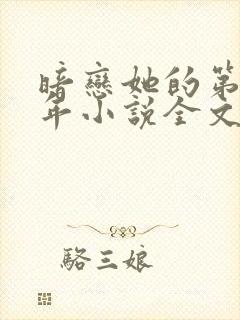 暗戀她的第
年小說全文
駱三娘